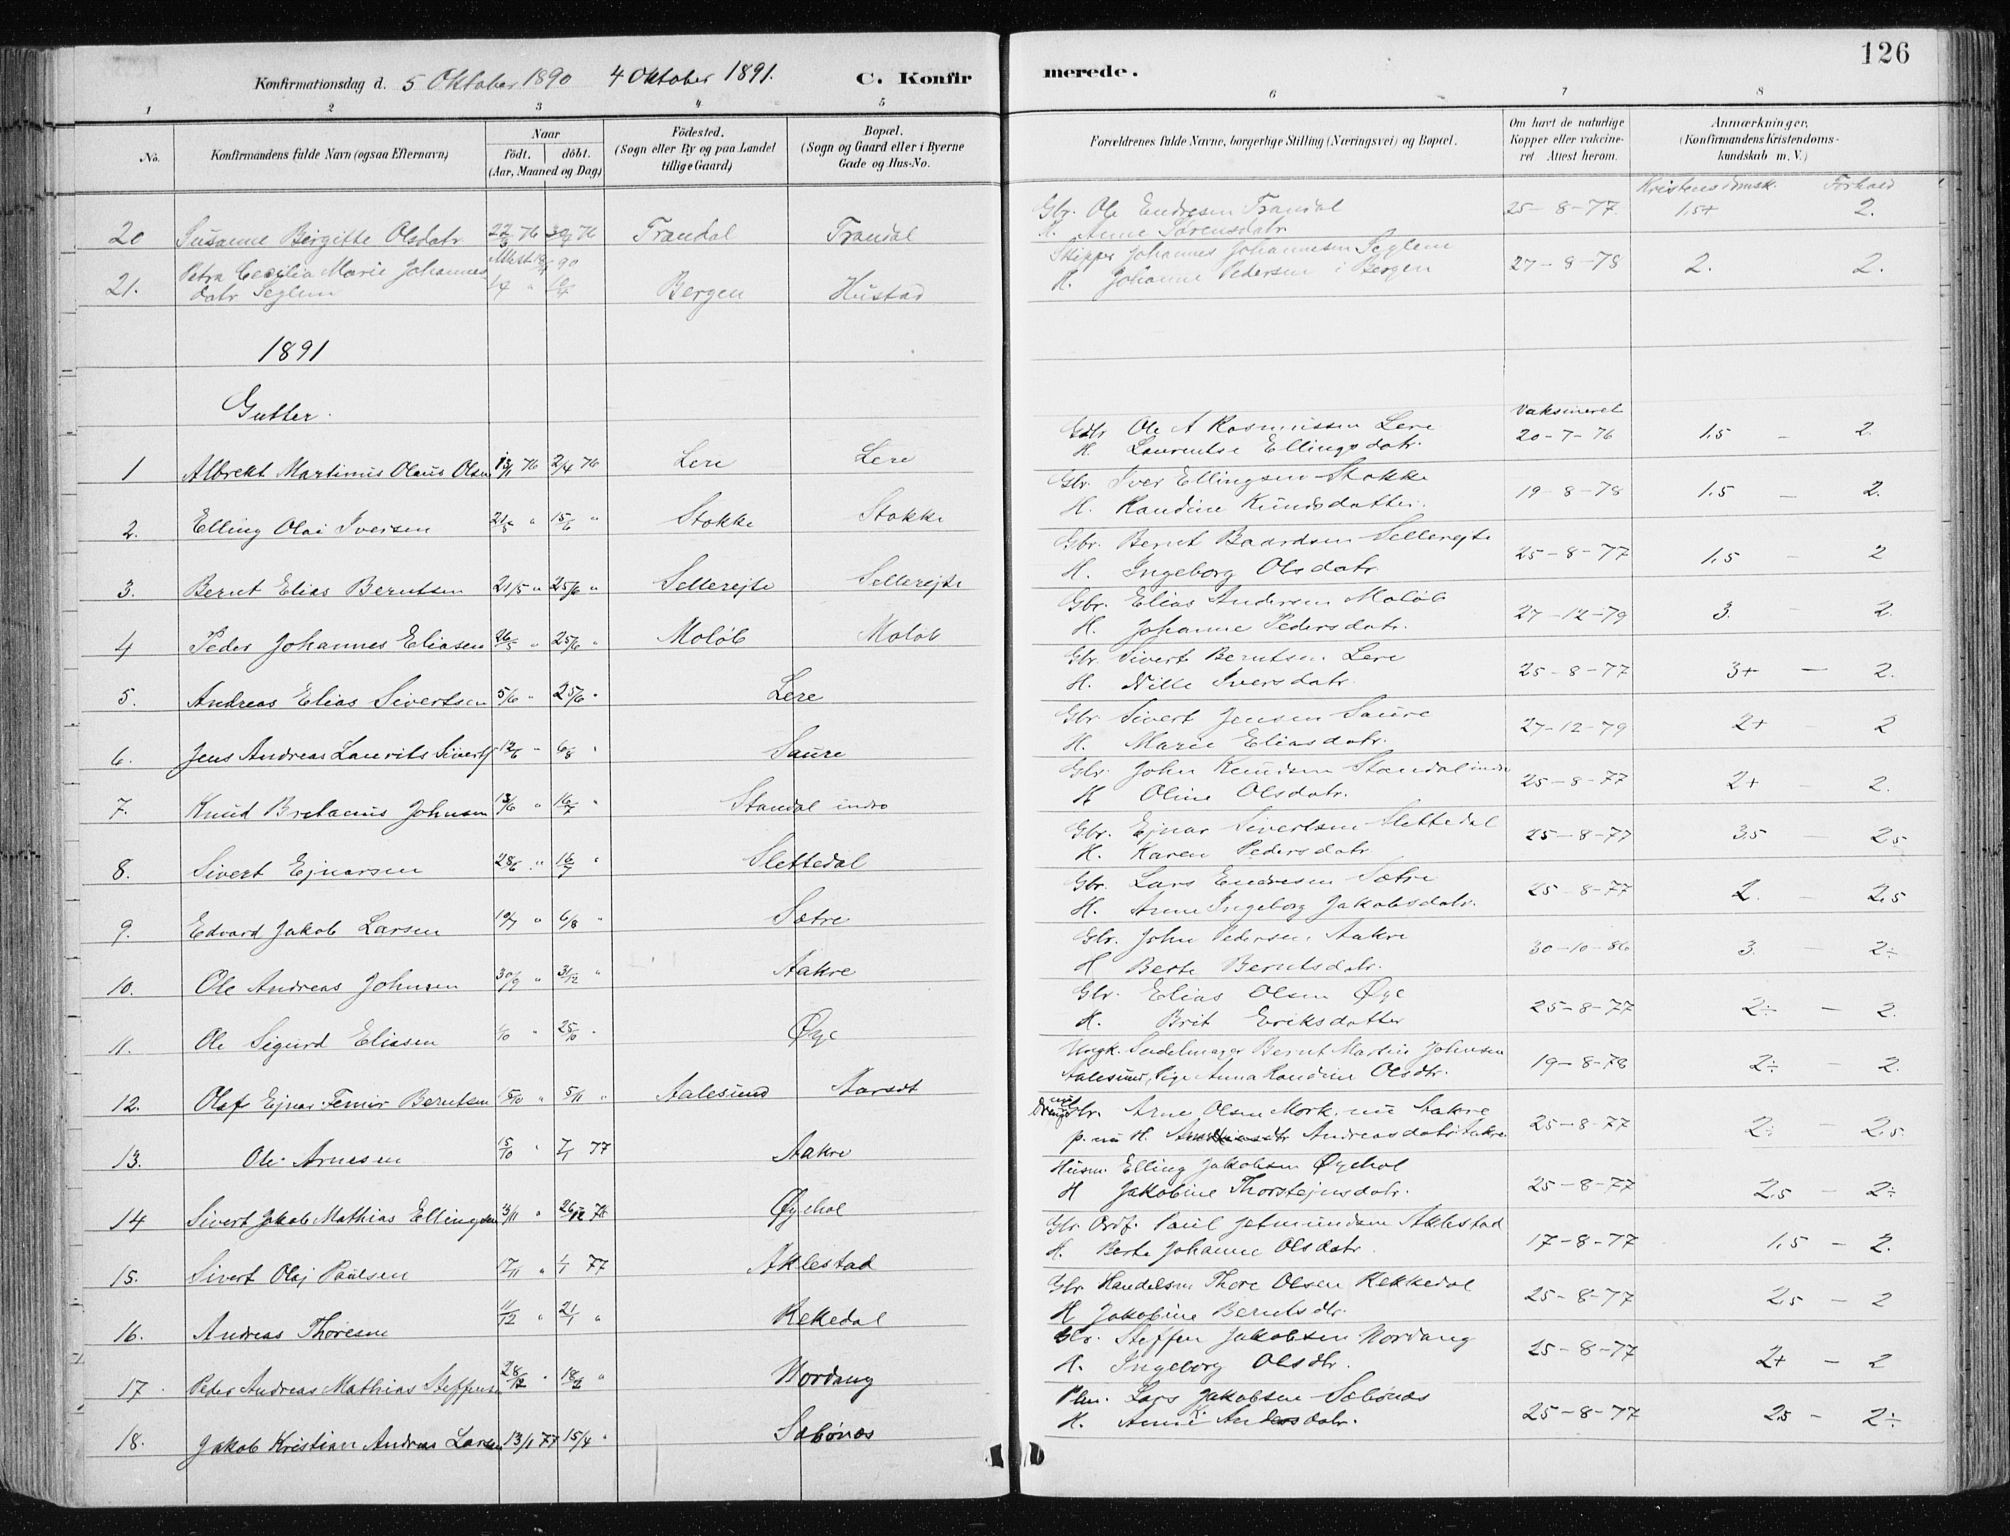 126
Konfirmationsdag d. 5 Oktober 1890 4 Oktober 1891. C. Konfirmerede.
1 2 3 4 5 6 7 8
No. Konfirmandens fulde Navn (ogsaa Efternavn) Naar født. døbt. (Aar, Maaned og Dag) Fødested. (Sogn eller By og paa Landet tillige Gaard) Bopæl. (Sogn og Gaard eller i Byerne Gade og Hus-No. Forældrenes fulde Navne, borgerlige Stilling (Næringsvei) og Bopæl. Om havt de naturlige Kopper eller vakcineret Attest herom. Anmærkninger, (Konfirmandens Kristendomskundskab m. V.)
Kristendomsk. Forhold
20 Susanne Birgitte Olsdatr 22/5 76 30/7 76 Trandal Trandal Gbr. Ole Endresen Trandal H. Anne Sørensdatr 25-8-77 1.5+ 2.
21. Petra Cecilia Marie Johannesdatr Seglem Bergen Hustad Skipper Johannes Johannesen Seglem H. Johanne Pedersen i Bergen 27-8-78 2. 2.
1891
Gutter.
Vaksineret
1 Albrekt Martinus Olaus Olsen 13/11 76 2/4 76 Lere Lere Gbr Ole A Rasmussen Lere H. Laurentse Ellingsdatr. 20-7-76 1.5 - 2.
2. Elling Olai Iversen 21/5 " 15/6 " Stokke Stokke Gbr. Iver Ellingsen Stokke H. Randine Knudsdatter. 19-8-78 1.5 - 2.
3. Bernt Elias Berntsen 21/5 " 25/6 " Sellerejte Sellerejte Gbr. Bernt Baardsen Sellerejte H. Ingeborg Olsdatr. 25-8-77 1.5 - 2
4 Peder Johannes Eliasen 26/5 " 25/6 " Moløb Moløb Gbr. Elias Andersen Moløb H. Johanne Pedersdatr. 27-12-79 3. - 2.
5. Andreas Elias Sivertsen 5/6 " 25/6 " Lere Gbr Sivert Berntsen Lere H. Nille Iversdatr. 25-8-77 3+ - 2.
6. Jens Andreas Laurits Siverts 12/6 " 6/8 " Saure Gbr Sivert Jensen Saure H. Marie Eliasdatr. 27-12-79 2+ - 2
7. Knud Bretanus Johnsen 13/6 " 16/7 " Standal indre Gbr. John Knudsen Standal indre H Oline Olsdatr. 25-8-77 2+ - 2.
8. Sivert Ejnarsen 28/6 " 16/7 " Slettedal Gbr. Ejnar Sivertsen Slettedal H. Karen Pedersdatr 25-8-77 3.5 - 2.5
9. Edvard Jakob Larsen 10/7 " 6/8 " Sætre Gbr. Lars Endresen Sætre H. Anne Ingeborg Jakobsdatr. 25-8-77 2. - 2.5
10. Ole Andreas Johnsen 30/9 " 31/12 " Aakre Gbr. John Pedersen Aakre H Berte Berntsdatr. 30-10-86 3. - 2÷
11. Ole Sigurd Eliasen 1/10 " 25/10 " Øye Gbr. Elias Olsen Øye H. Brit Eriksdatter 25-8-77 2÷ - 2.
12. Olaf Ejnar Berntsen 15/10 " 5/11 " Aalesund Aarsdt Ungk. Sadelmager Bernt Martin Johnsen Aalesund, Pige Anna Randine Olsdtr. 19-8-78 2÷ - 2.
13. Ole Arnesen 15/10 " 7/1 77 Aakre Gbr. Arne Olsen Mork, nu Aakre p. nu H. Andreasdatr Aakre 25-8-77 2÷ - 2.5
14 Sivert Jakob Mathias Ellingsen 3/11 " 26/12 76 Øyehol Husm. Elling Jakobsen Øyehol H Jakobine Thorstejnsdatr. 25-8-77 2.5 - 2÷
15. Sivert Olaj Paulsen 17/11 " 1/1 77 Aklestad Gbr Ordf. Paul Jetmundsen Aklestad H. Berte Johanne Olsdatr. 17-8-77 1.5 - 2.
16. Andreas Thoresen 11/12 " 21/1 " Rekkedal Gbr Handelsm Thore Olsen Rekkedal H Jakobine Berntsdtr. 25-8-77 2.5 - 2
17. Peder Andreas Mathias Steffensen 28/12 " 18/2 " Nordang Gbr. Steffen Jakobsen Nordang H. Ingeborg Olsdtr. 25-8-77 2+ - 2
18. Jakob Kristian Andreas Larsen 13/1 77 15/4 " Sæbønes Plm. Lars Jakobsen Sæbønes H. Anne K. Andersdatr. 25-8-77 2.5 - 2÷